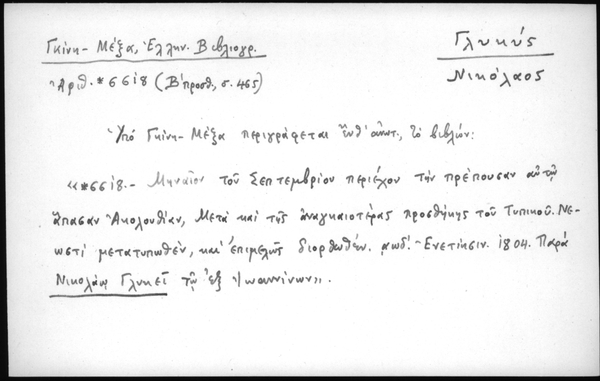 Γκίνη - Μέξα, Ἑλλην. Βιβλιογρ.
Γλυκύς
Ἀριθ. *6618 (Β'προσθ., σ. 465)
Νικόλαος
Ὑπό Γκίνη - Μέξα περιγράφεται τὸ βιβλίον:
«*6618.- Μηναῖον τοῦ Σεπτεμβρίου περιέχον τὴν πρέπουσαν αὐτῷ
ἅπασαν Ἀκολουθίαν, Μετὰ καὶ τῆς ἀναγκαιοτέρας προσθήκης τοῦ Τυπικοῦ. Νε-
ωστὶ μετατυπωθὲν, καὶ ἐπιμελῶς διορθωθέν. ͵αωδ'. Ἐνετίῃσιν. 1804. Παρὰ
Νικολάῳ Γλυκεῖ τῷ ἐξ Ἰωαννίνων».